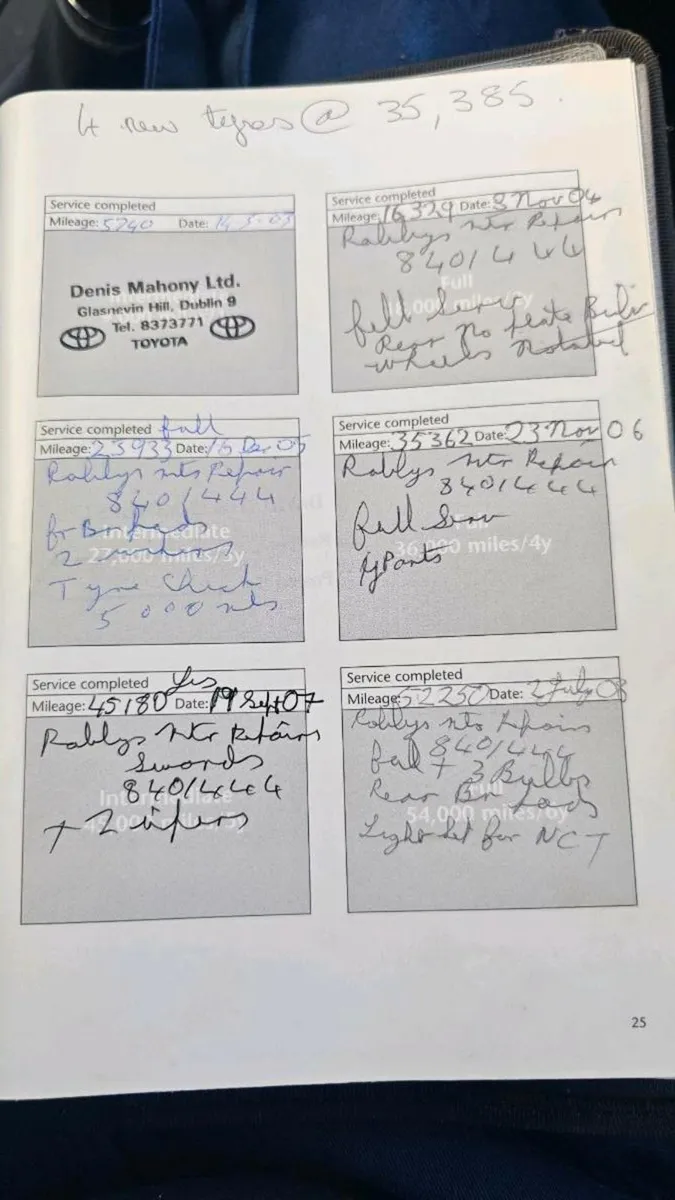 4 new tyres @ 35,385.
Service completed
Mileage: 5740 Date:
Denis Mahony Ltd.
Glasnevin Hill, Dublin 9
Tel. 8373771
TOYOTA
Service completed
Mileage: 16329 Date: 8 Nov 04
Rablys Mtr Repairs
8401444
Full
full Service
Rear No Plate Bulb
wheels Rotated
Service completed full
Mileage: 23933 Date: 05
Rablys Mtr Repair
8401444
Intermediate
2
27,000 miles/3y
Tyre Check
5000 mls
Service completed
Mileage: 35362 Date: 23 Nov 06
Rablys Mtr Repair
8401444
full
36,000 miles/4y
Service completed Yes
Mileage: 45180 Date: 19 Sept 07
Rablys Mtr Repairs
Swords
8401444
Intermediate
+ 2 wipers
Service completed
Mileage: 52250 Date: 2 July 08
Rablys Mtr Repairs
8401444
full + 3 Bulbs
Rear
54,000 miles/6y
Light for NCT
25